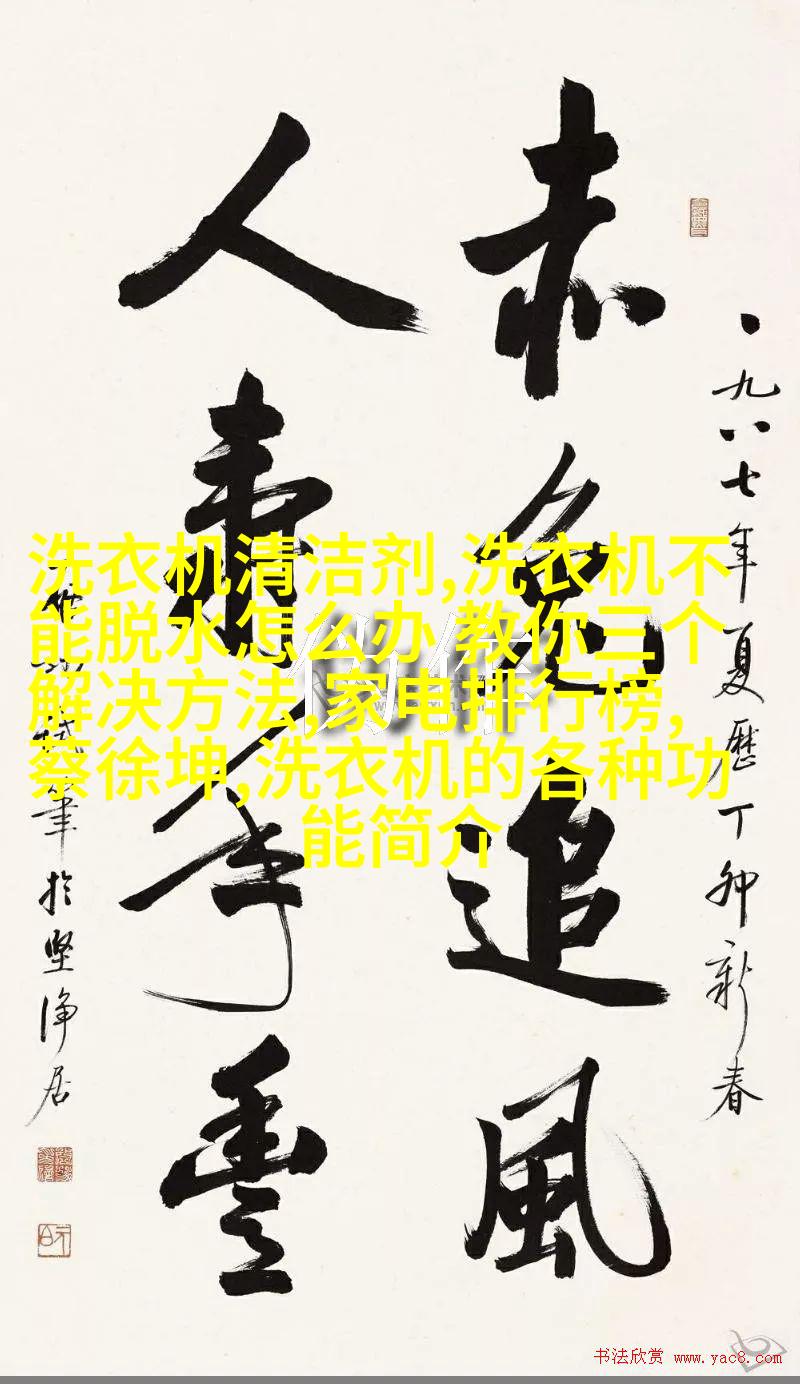 一九八七年夏歷丁卯新春
赤兔追風
人壽年豐
筆於堅淨居
洗衣机清洁剂,洗衣机不
能脱水怎么办,教你三个
解决方法,家电排行榜,
蔡徐坤,洗衣机的各种功
能简介
书法欣赏 www.yac8.com